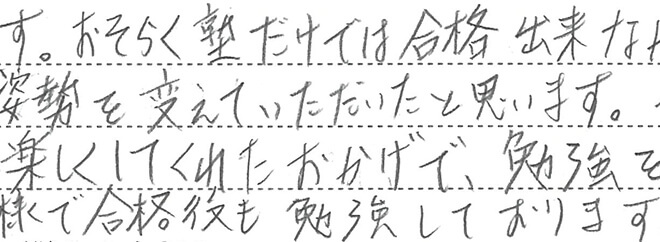 す。おそらく塾だけでは合格出来な
姿勢を変えていただいたと思います。
楽しくしてくれたおかげで、勉強を
様くで合格後も勉強しております